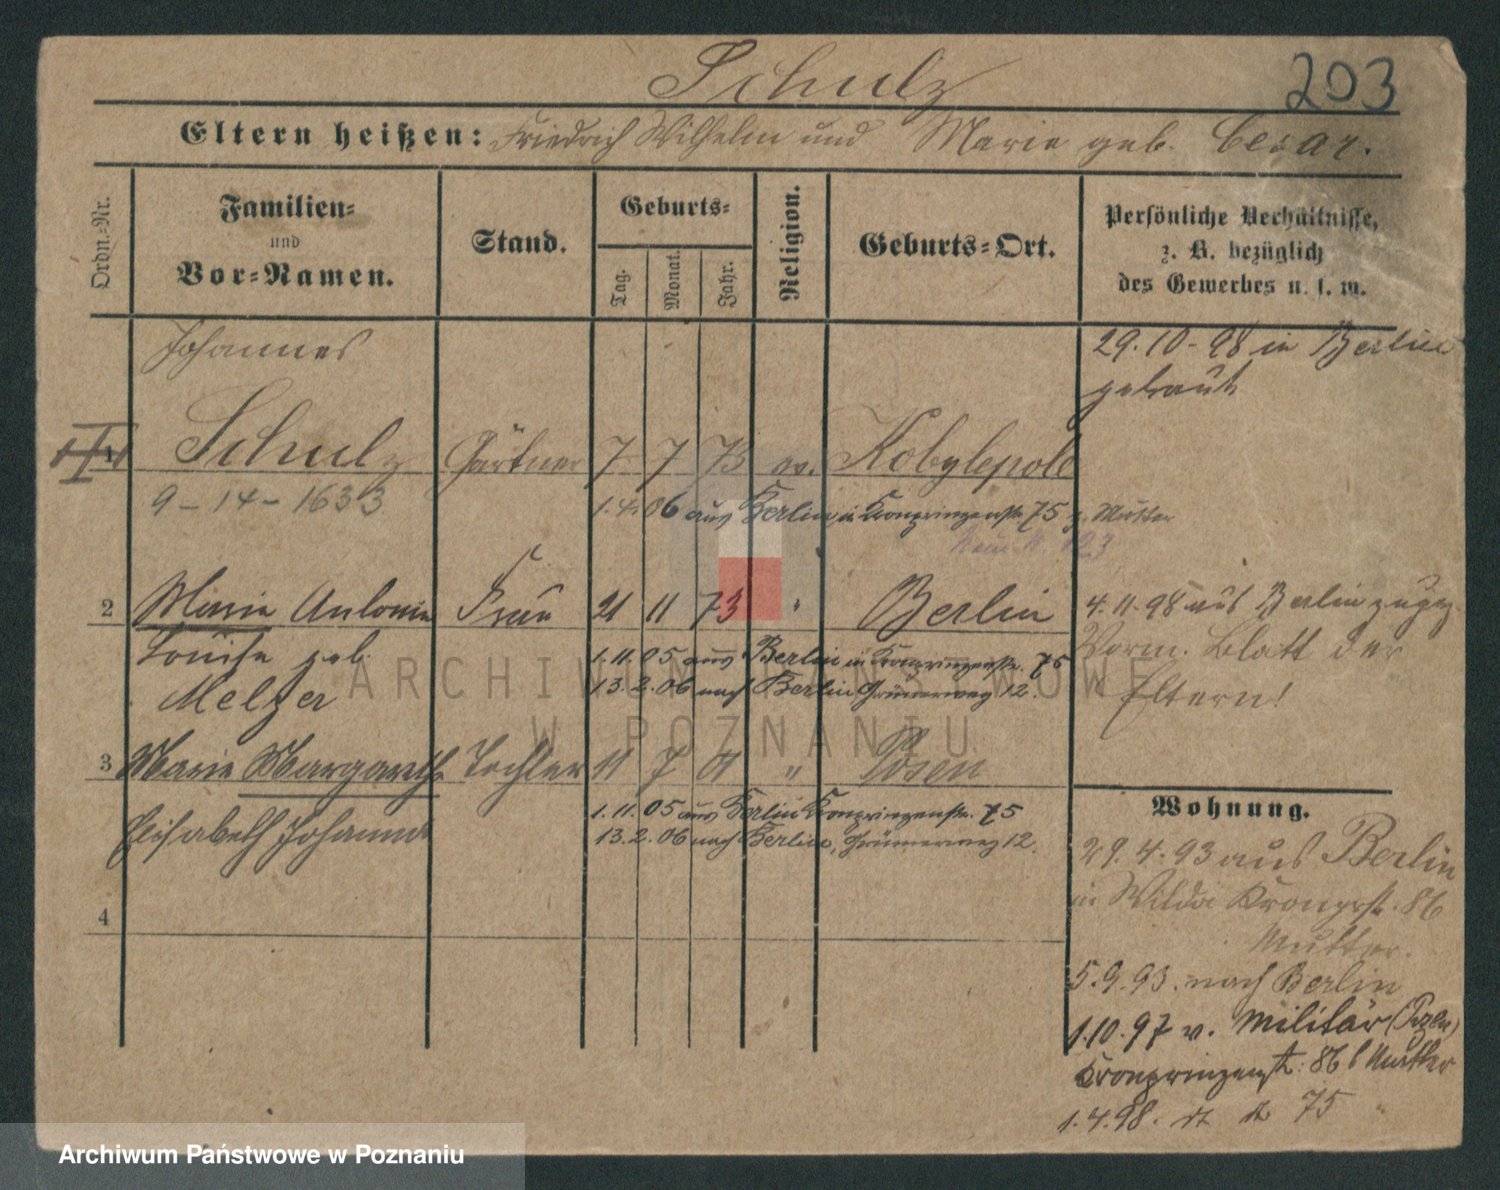 Schulz
203
Eltern heißen: Friedrich Wilhelm und Marie geb. Cesar.
Ordn.-Nr.
Familien-
und
Vor-Namen.
Stand.
Geburts-
Tag.
Monat.
Jahr.
Religion.
Geburts-Ort.
Persönliche Verhältnisse,
z. B. bezüglich
des Gewerbes u. s. w.
Johannes
29.10-98 in Berlin
getraut
1 Schulz Gärtner 7 7 73 ev. Kobylepole
9-14-1633
1.4.06 aus Berlin in Kronprinzenstr. 75 z. Mutter
2 Marie Antonie Frau 21 11 73 " Berlin
4.11.98 aus Berlin zugez.
Louise geb.
Vorm. Blatt der
Melzer
Eltern!
1.11.05 aus Berlin in Kronprinzenstr. 75
13.2.06 nach Berlin Grünerweg 12.
ARCHIWUM PAŃSTWOWE
W POZNANIU
3 Marie Margarethe Tochter 11 7 01 " Posen
Elisabeth Johanna
1.11.05 aus Berlin Kronprinzenstr. 75
13.2.06 nach Berlin, Grünerweg 12.
4
Wohnung.
29.4.93 aus Berlin
in Wilda Kronprstr. 86
Mutter.
5.9.93. nach Berlin
1.10.97 v. Militär
Kronprinzenstr. 86 b Mutter
1.4.98. 75 "
Archiwum Państwowe w Poznaniu